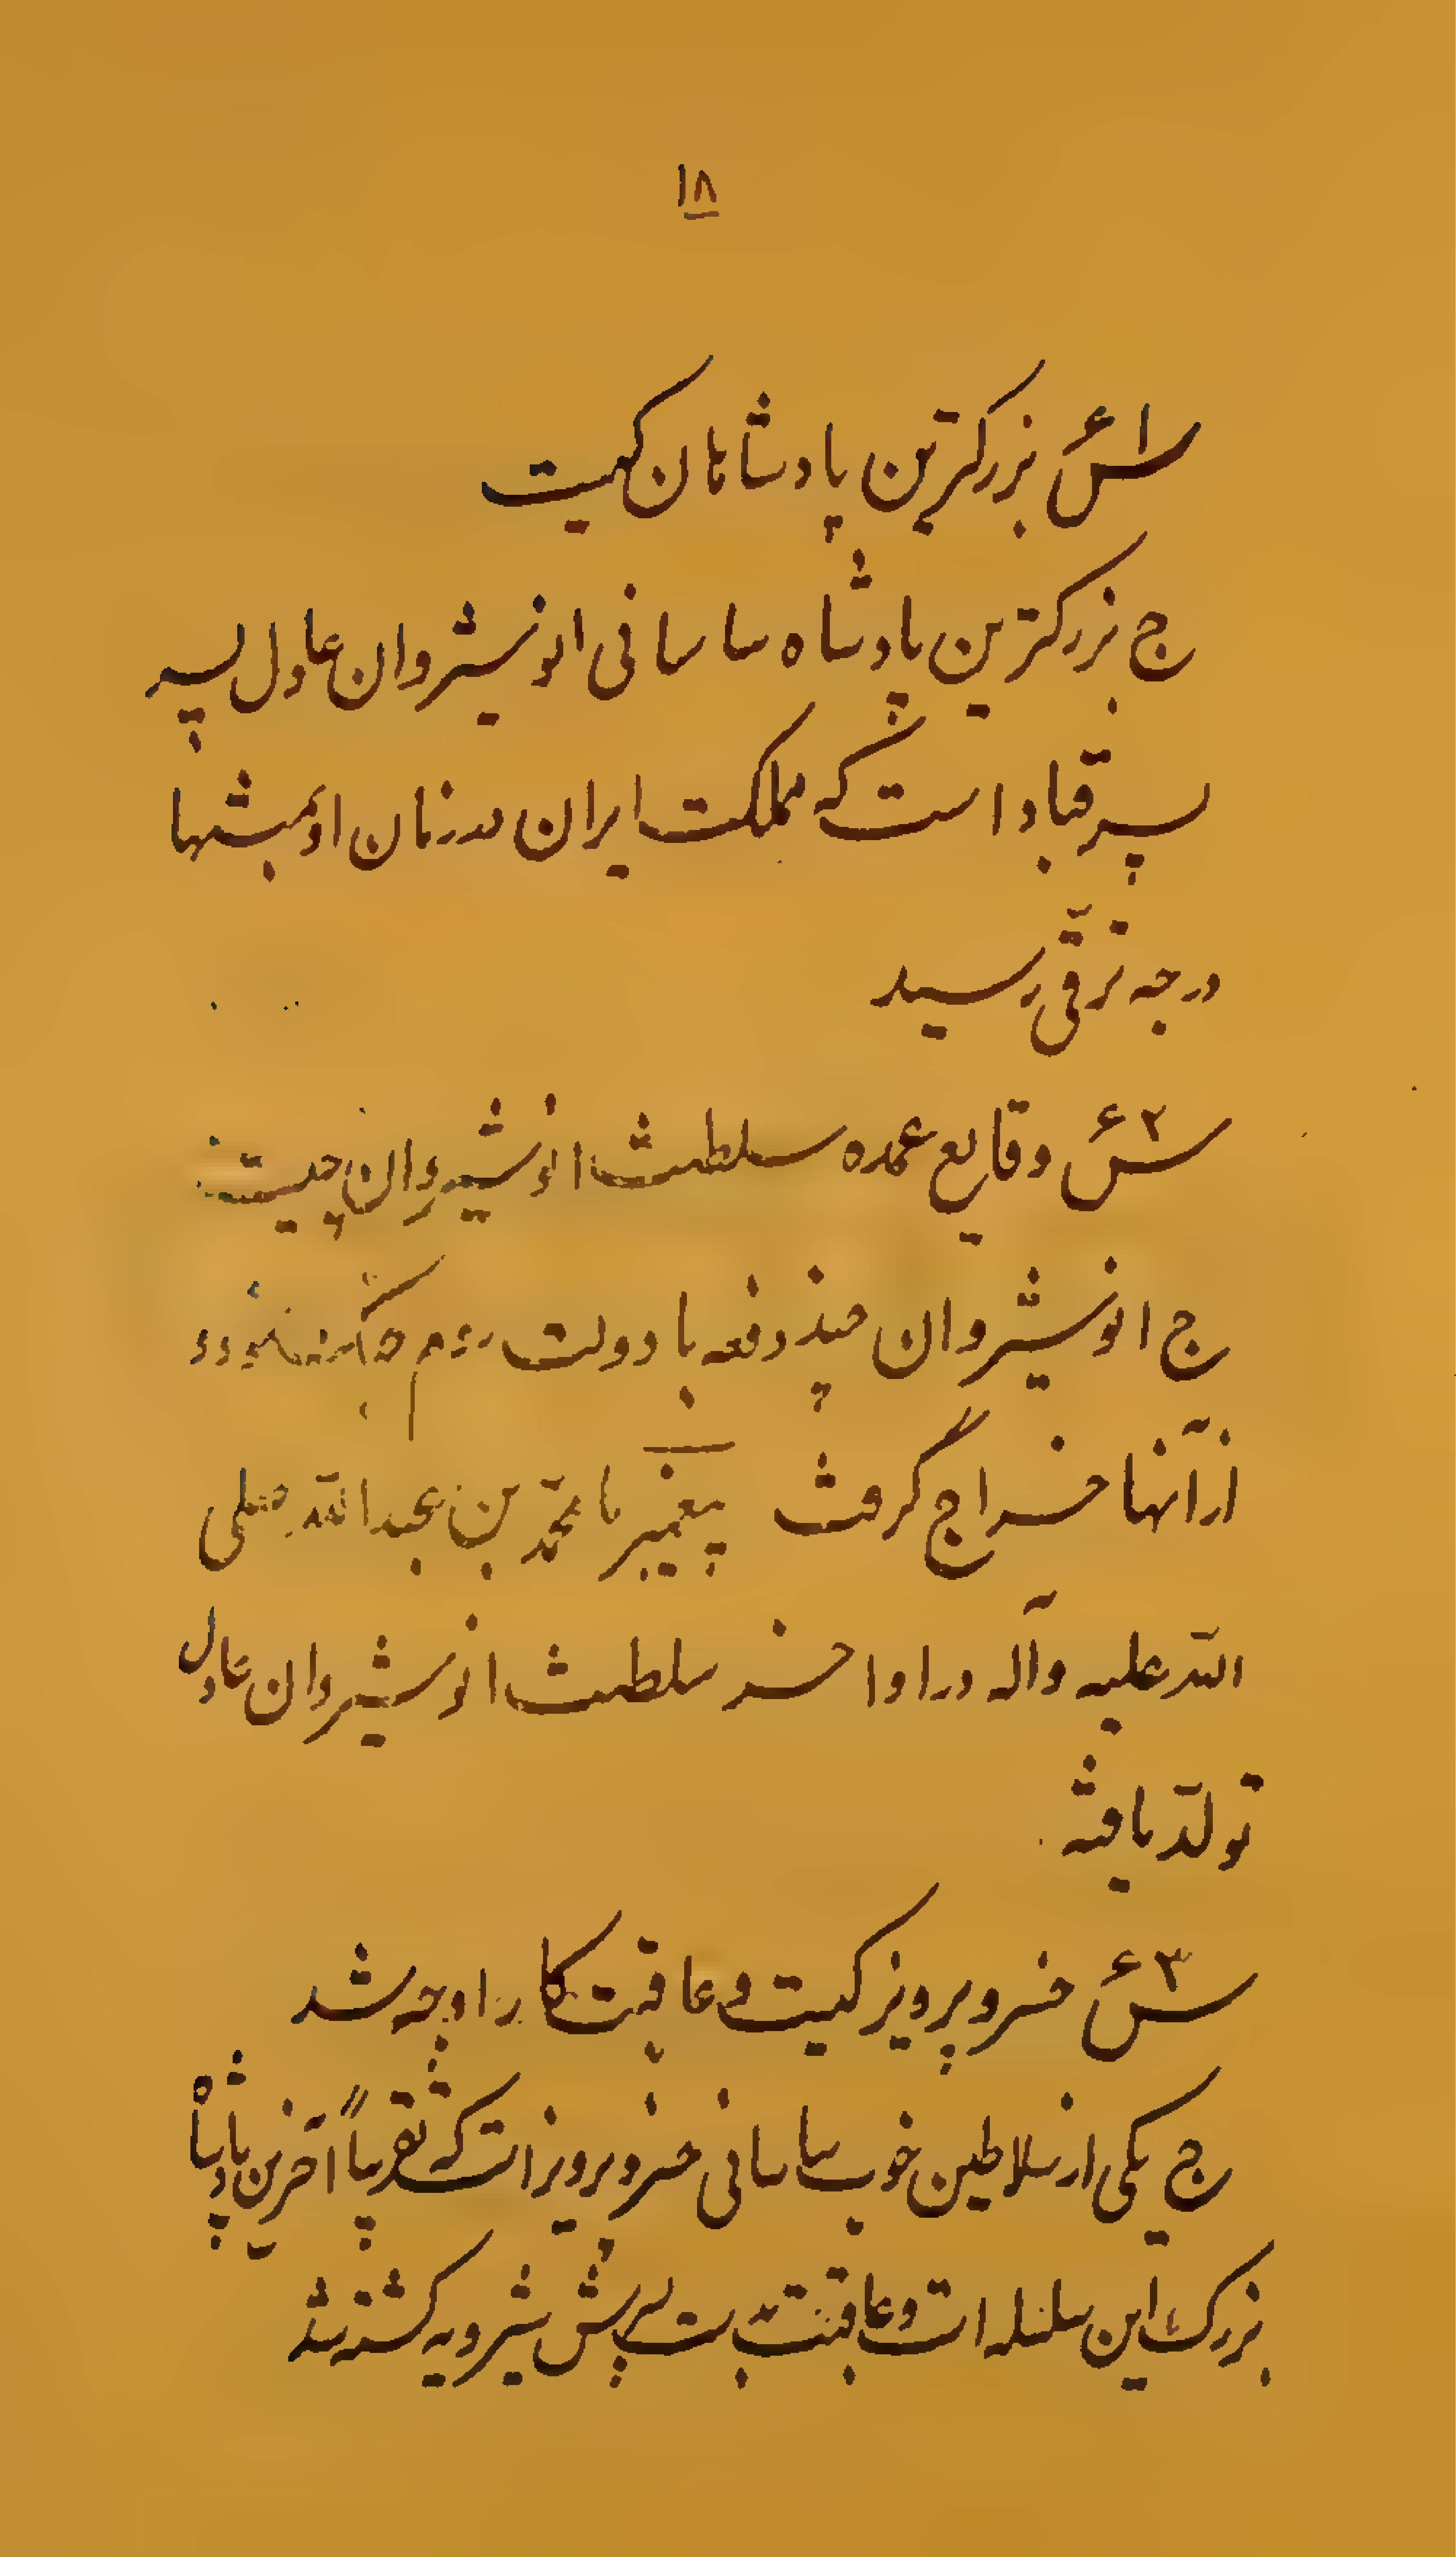 ۱۸
س۴۱ بزرگترین پادشاهان کیست
ج بزرگترین پادشاه ساسانی انوشیروان عادل پسر
پسر قباد است که مملکت ایران در زمان او بمنتها
درجه ترقی رسید
س۴۲ وقایع عمده سلطنت انوشیروان چیست
ج انوشیروان چند دفعه با دولت روم جنگ نموده و
از آنها خراج گرفت پیغمبر ما محمّد بن عبداللّه صلی
اللّه علیه وآله در اواخر سلطنت انوشیروان عادل
تولّد یافته
س۴۳ خسرو پرویز کیست و عاقبت کار او چه شد
ج یکی از سلاطین خوب ساسانی خسرو پرویز است که تقریباً آخرین پادشاه
بزرگ این سلسله است و عاقبت بدست پسرش شیرویه کشته شد